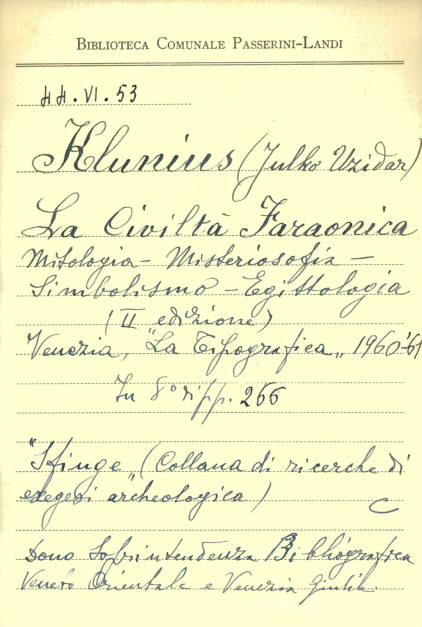 BIBLIOTECA COMUNALE PASSERINI-LANDI
44.VI.53
Klunius (Julko Uzidar)
La Civiltà Faraonica
Mitologia - Misteriosofia -
Simbolismo - Egittologia
(II edizione)
Venezia, "La Tipografica" 1960-'61
In 8° di pp. 266
"Sfinge" (Collana di ricerche di
esegesi archeologica)
C
Dono Soprintendenza Bibliografica
Veneto Orientale e Venezia Giulia.